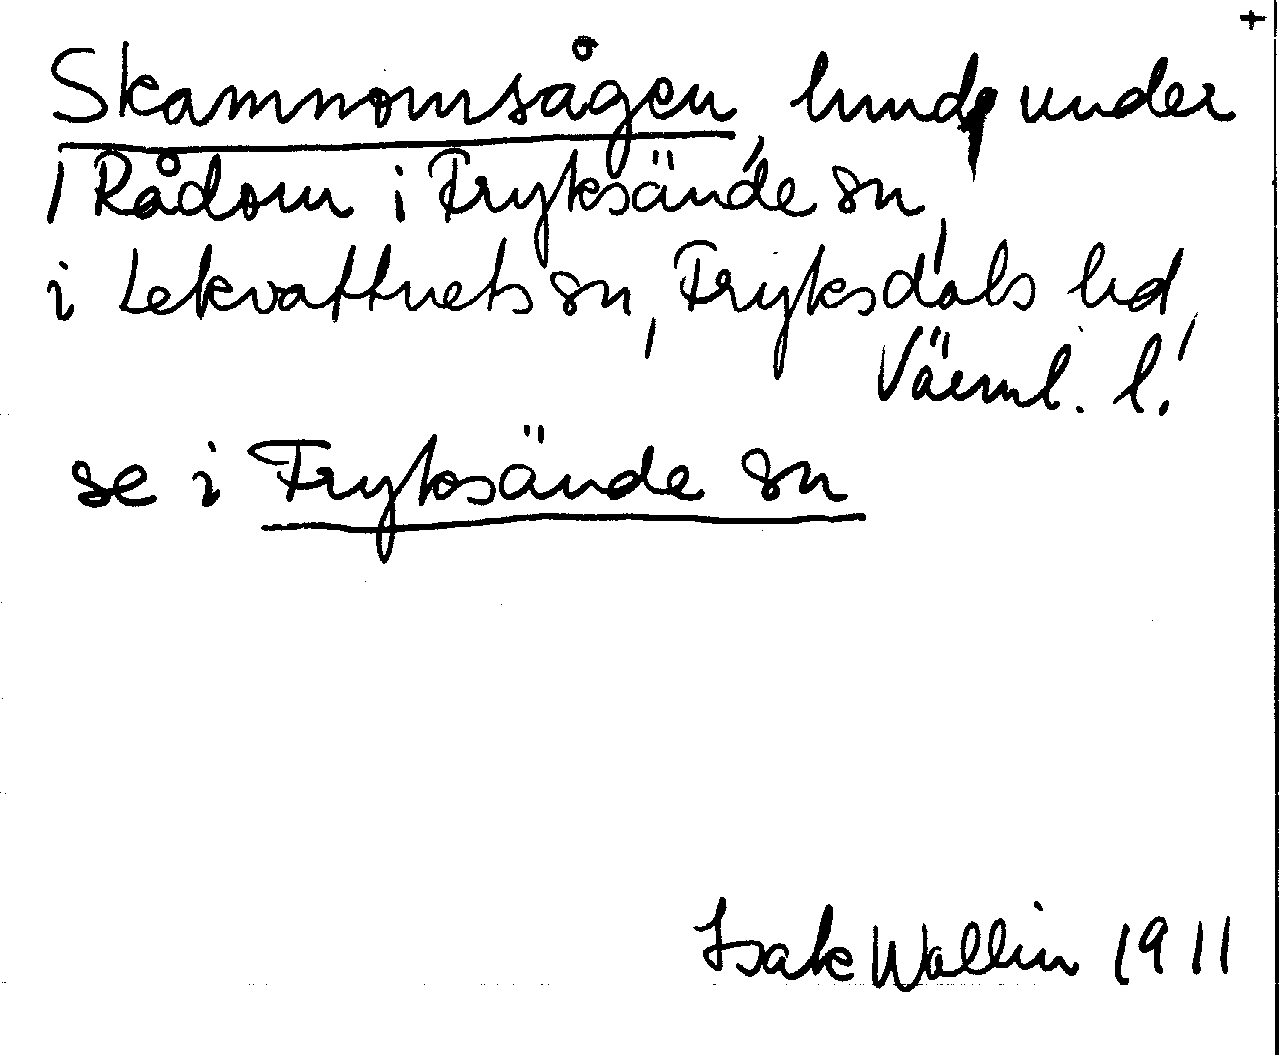 +
Skamnomsågen, lund, under
1 Rådom i Fryksände sn,
i Lekvattnets sn, Fryksdals hd,
Värml. l.
se i Fryksände sn
Isak Wallin 1911